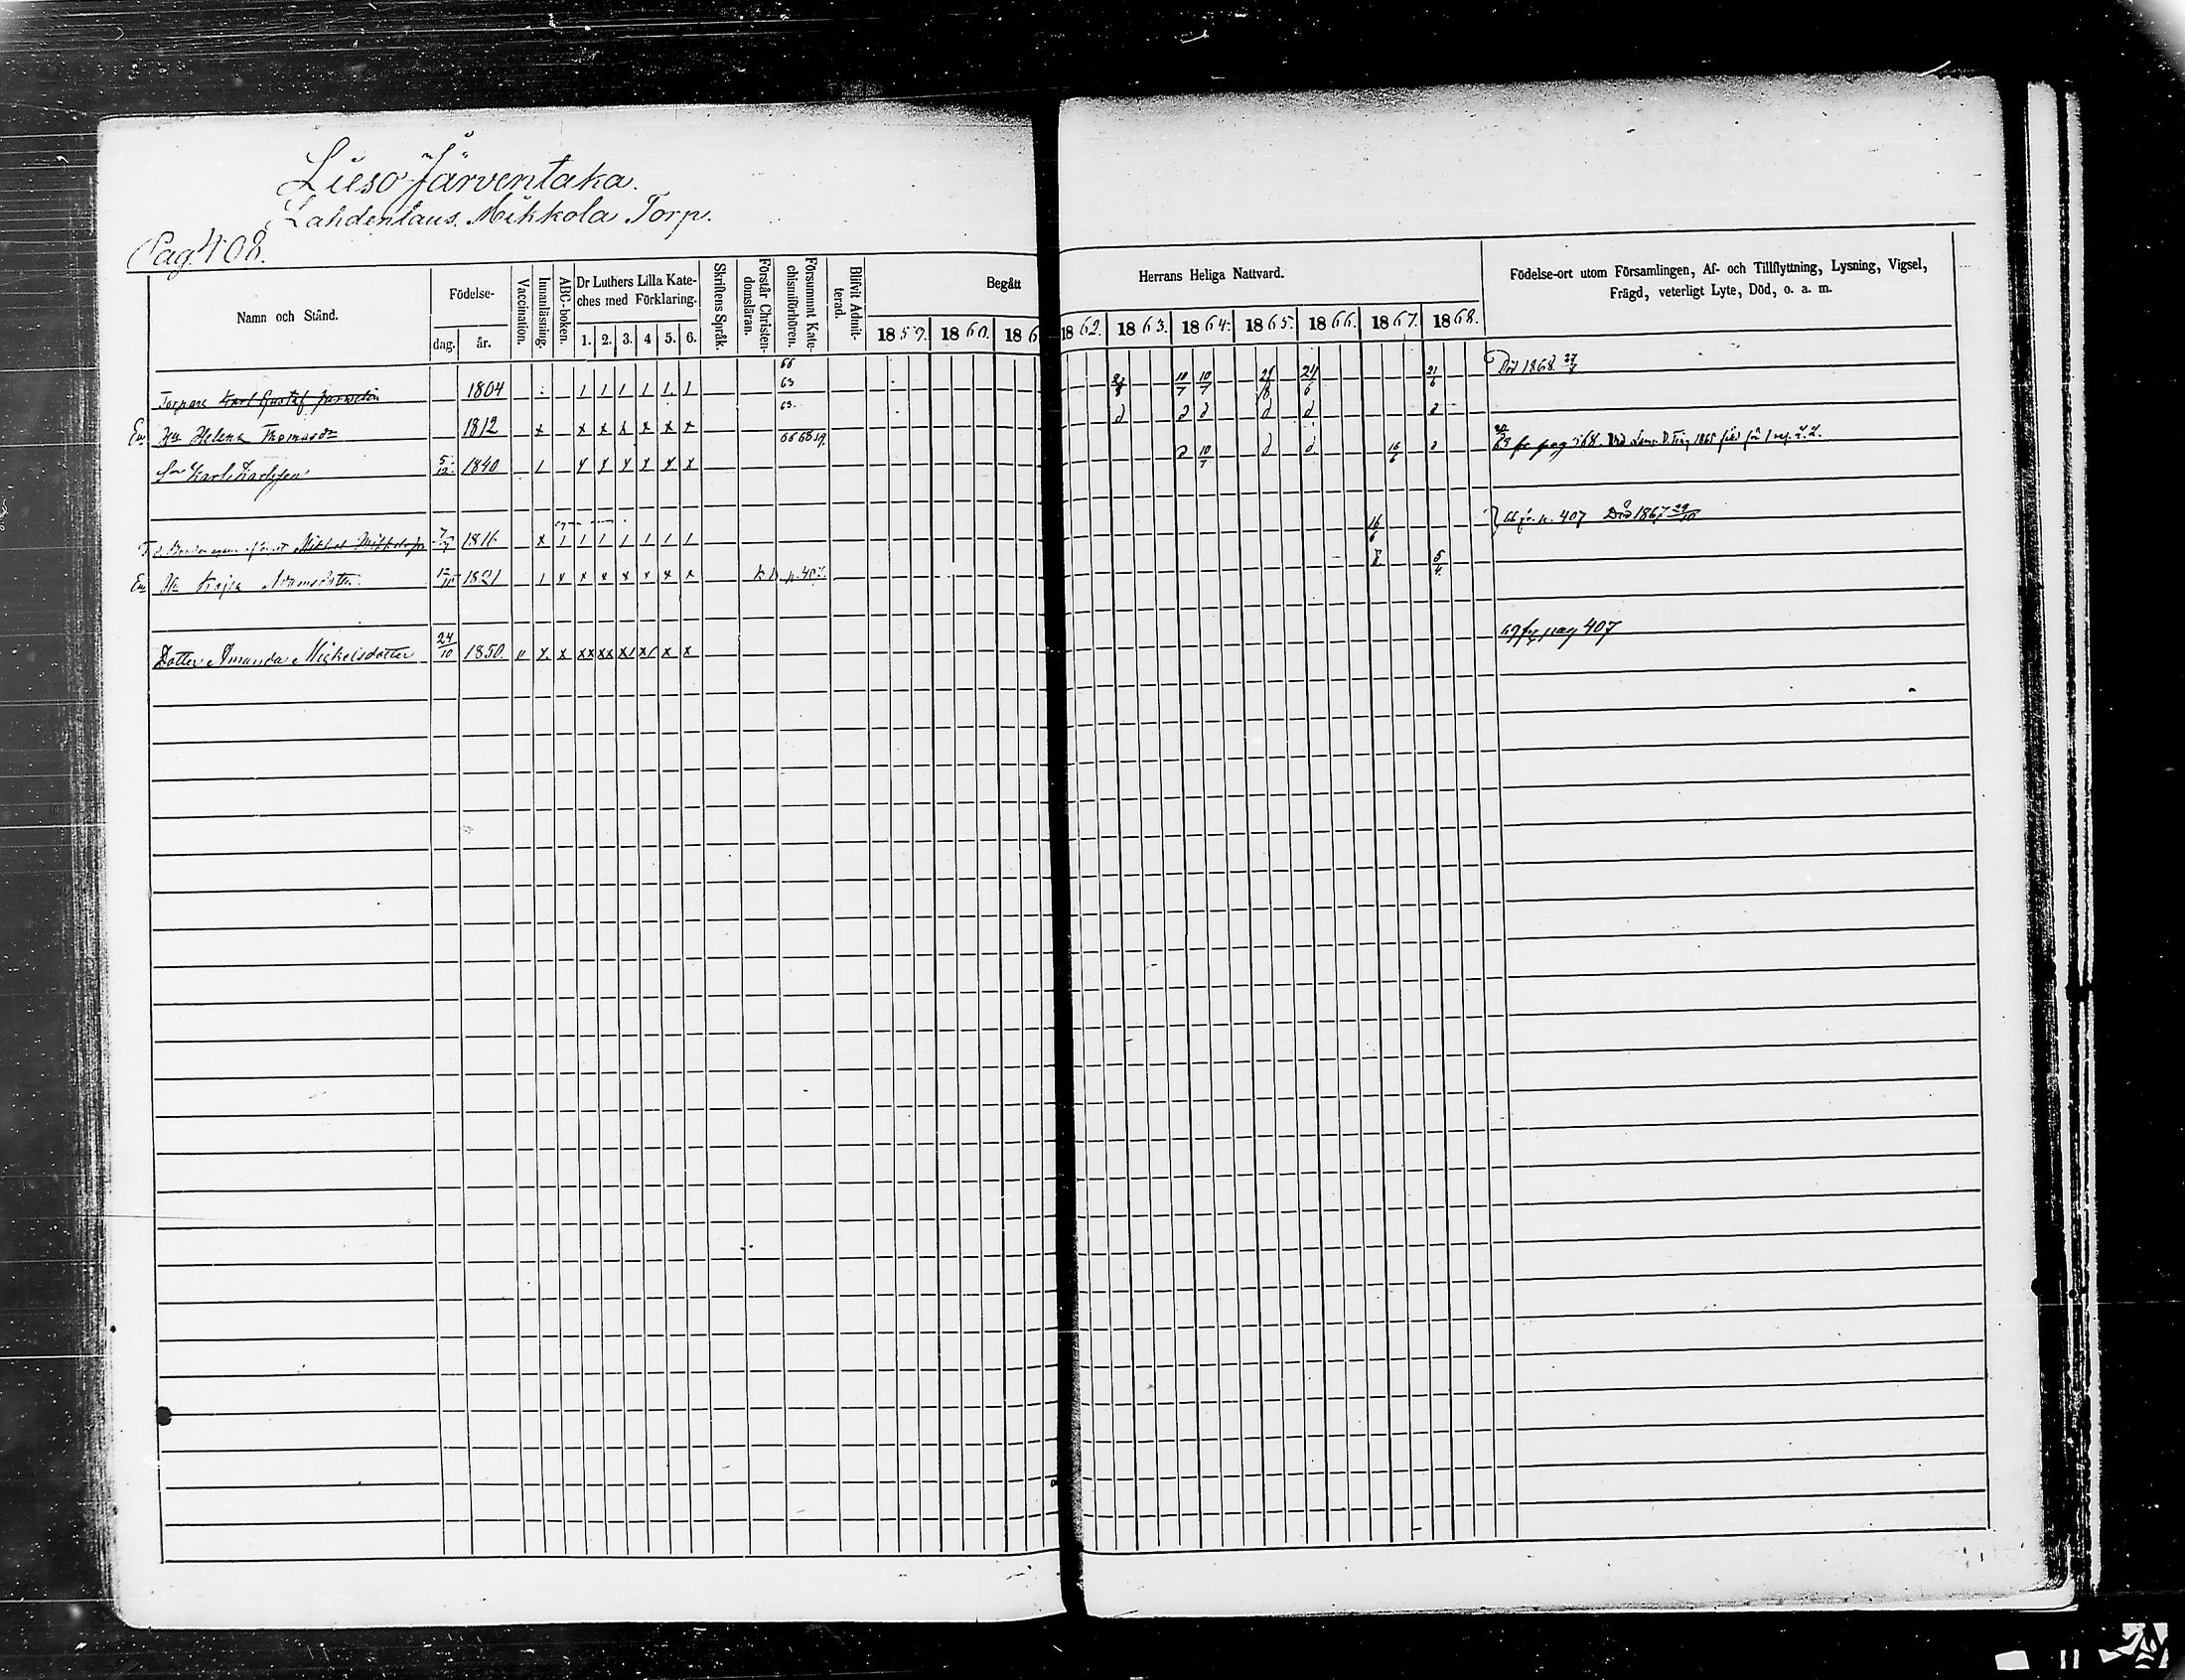 Luso Järventaka.
Lahdentaus. Mikkola Torp.
Pag. 408.
Namn och Stånd.
Födelse-
dag. år.
Vaccination.
Innanläsning.
ABC-boken.
Dr Luthers Lilla Kate-
ches med Förklaring.
1. 2. 3. 4 5. 6.
Skriftens Språk.
Förstår Christen-
domsläran.
Försummt Kate-
chismiförhören.
Blifvit Admit-
terad.
Begått
1859. 1860. 186
Herrans Heliga Nattvard.
1862. 1863. 1864. 1865. 1866. 1867. 1868.
Födelse-ort utom Församlingen, Af- och Tillflyttning, Lysning, Vigsel,
Frägd, veterligt Lyte, Död, o. a. m.
Torpare Karl Gustaf 1804 1 1 1 1 1 1 66 63 10/7 10/7 24/6 21/6 Död 1868
Enk Hu Helena Thomasdr 1812 x x x x x x x 63
Son Karl Karlsson 5/12 1840 1 x x x x x x 66 68 10/7 16/6 63 fr pag 368.
Mikkel 1816 x 1 1 1 1 1 1 1 16/6 66 fr. p. 407 Död 1867 29/10
Enk Hu Kajsa Adamsdotter 1821 1 x x x x x x x p. 407. 5/4
Dotter Amanda Mickelsdotter 24/10 1850. v x x xx xx x/ x/ x x 69 fr pag 407